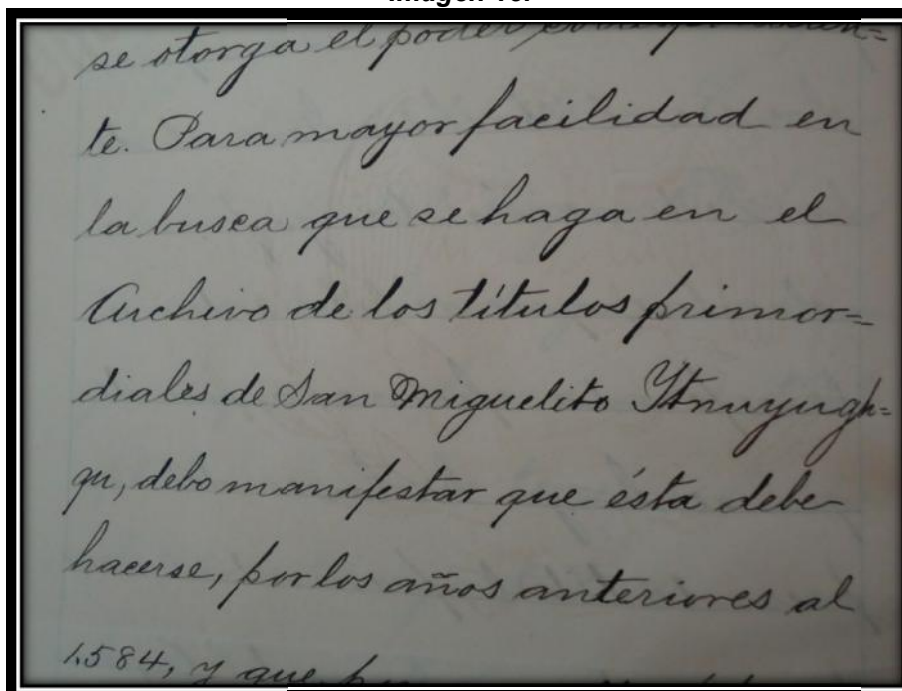 se otorga el poder
te. Para mayor facilidad en
la busca que se haga en el
Archivo de los títulos primor=
diales de San Miguelito Ytnuyugh=
qu, debo manifestar que ésta debe
hacerse, por los años anteriores al
1.584, y que